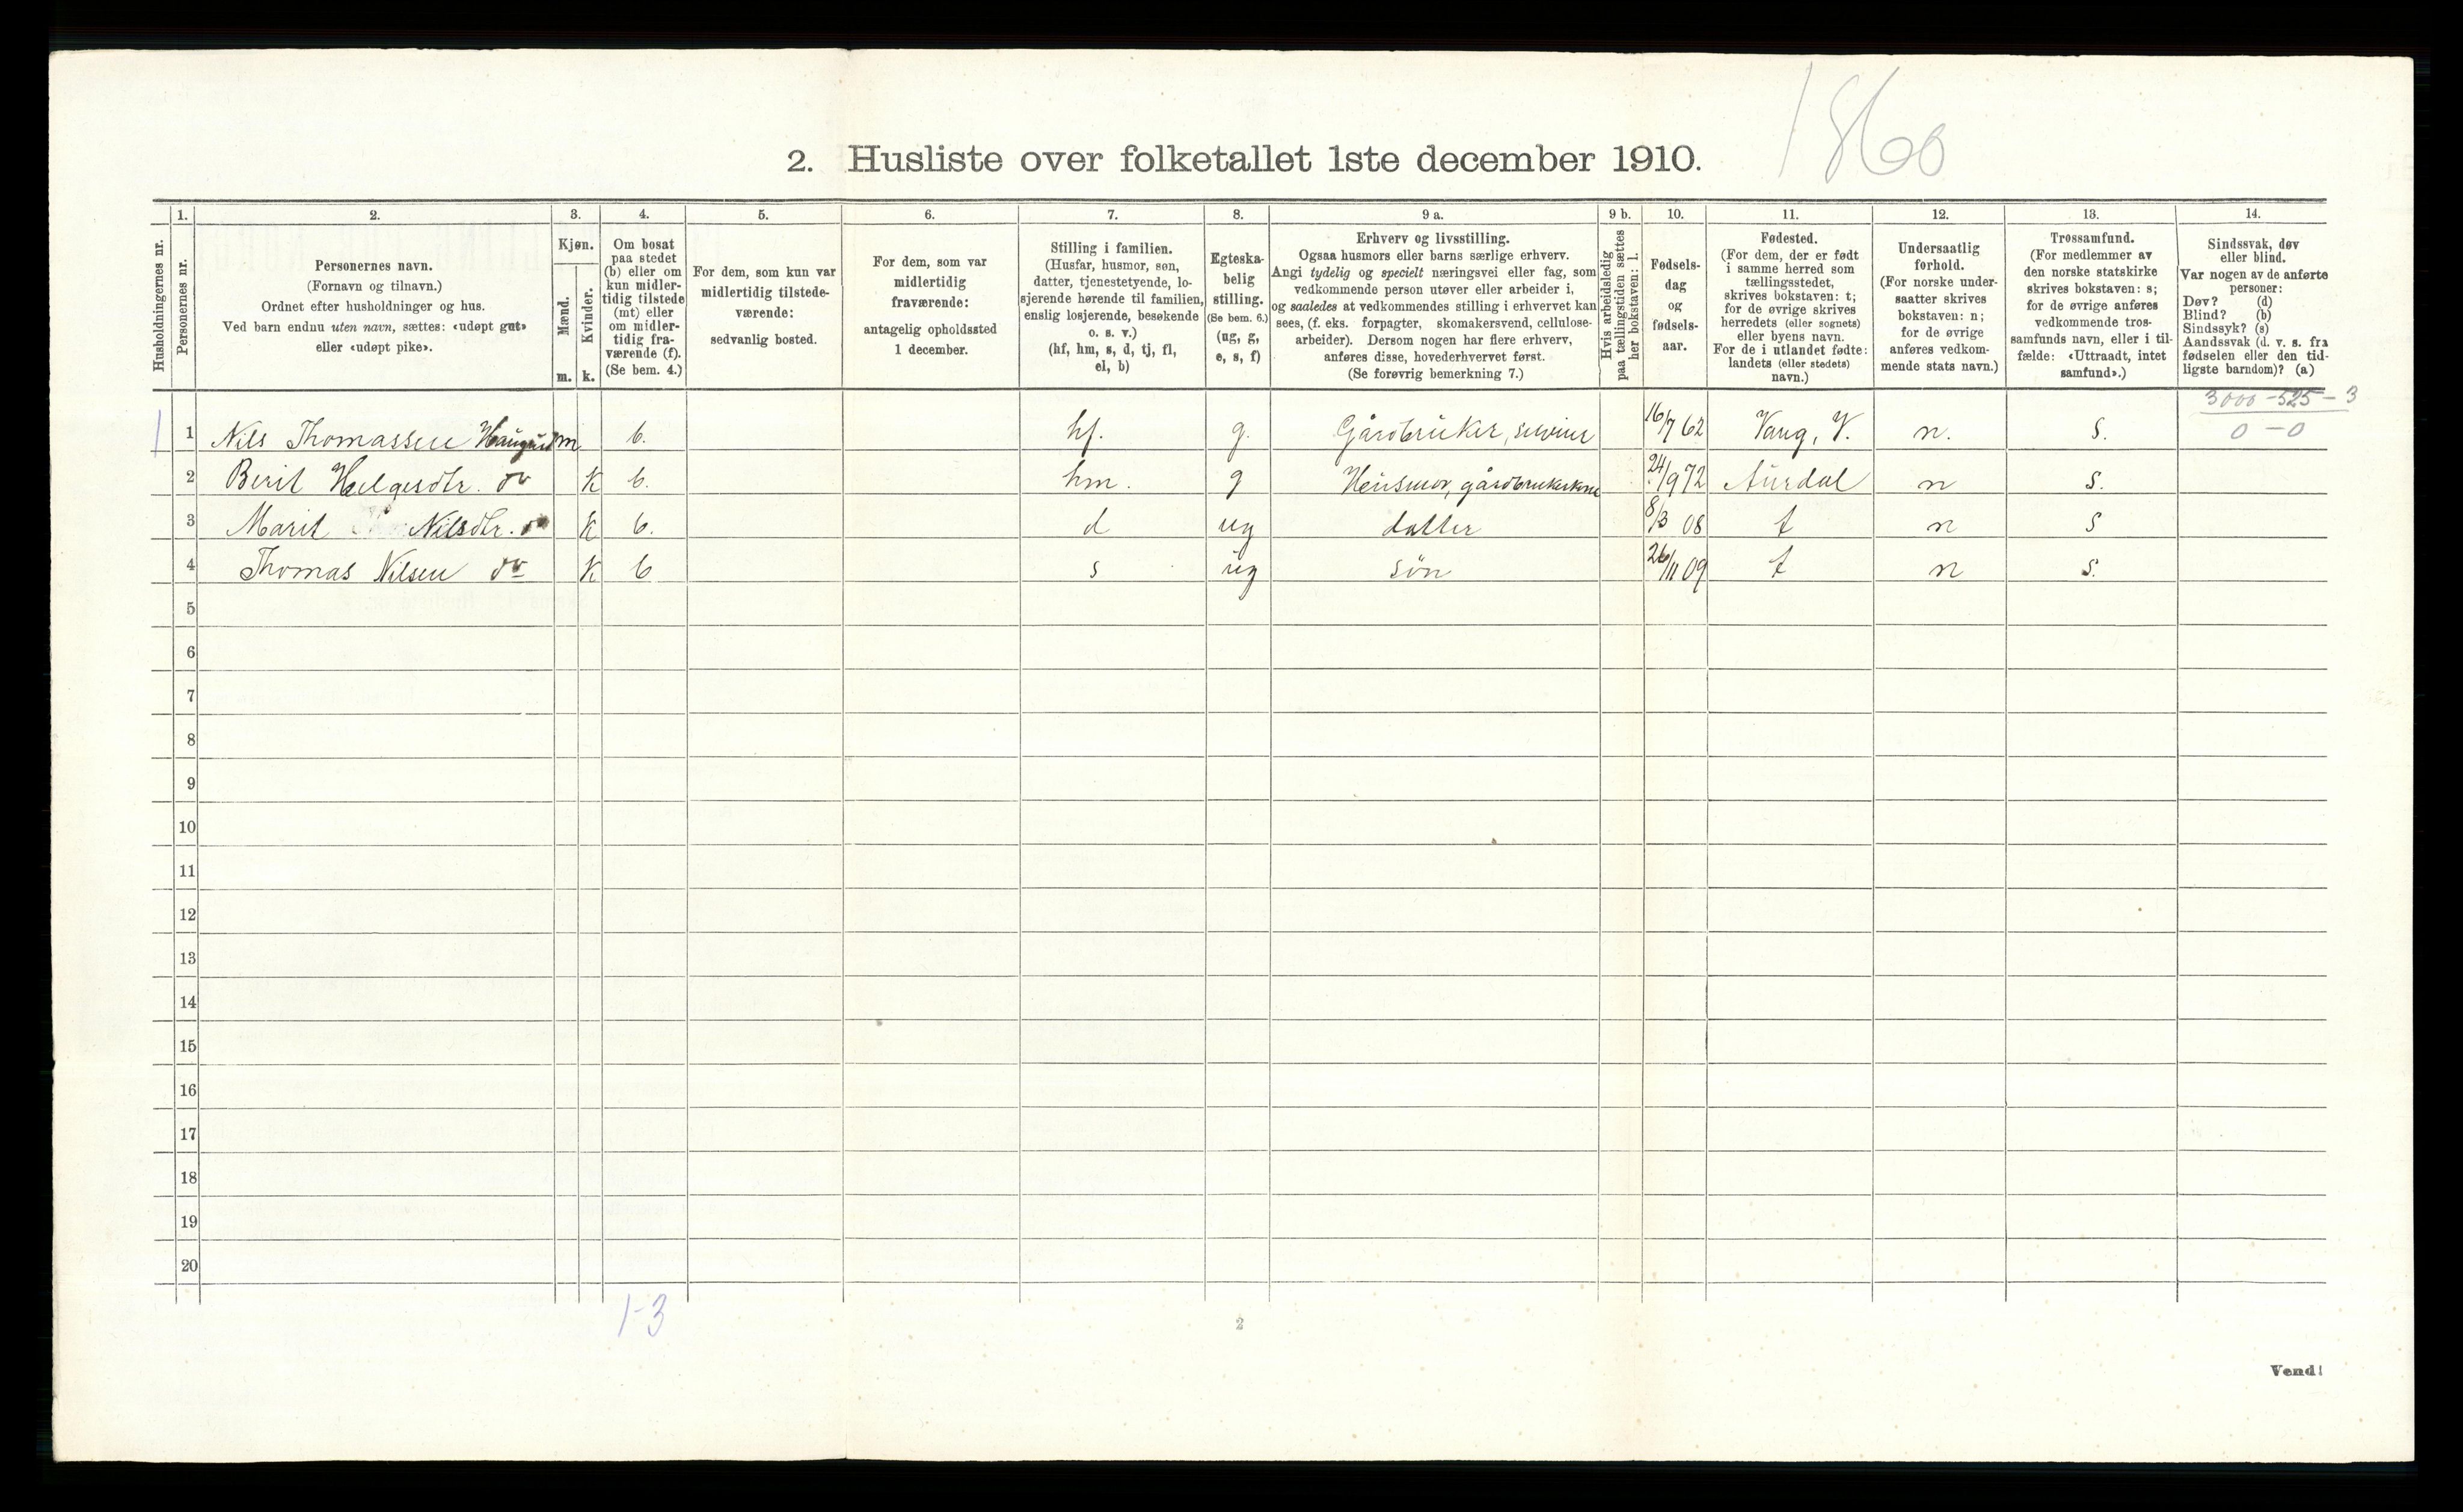 1860
2. Husliste over folketallet 1ste december 1910.
Husholdningernes nr.
1. Personernes nr.
2. Personernes navn.
(Fornavn og tilnavn.)
Ordnet efter husholdninger og hus.
Ved barn endnu uten navn, sættes: «udøpt gut»
eller «udøpt pike».
3. Kjøn.
Mænd. m.
Kvinder. k.
4. Om bosat
paa stedet
(b) eller om
kun midler-
tidig tilstede
(mt) eller
om midler-
tidig fra-
værende (f).
(Se bem. 4.)
5. For dem, som kun var
midlertidig tilstede-
værende:
sedvanlig bosted.
6. For dem, som var
midlertidig
fraværende:
antagelig opholdssted
1 december.
7. Stilling i familien.
(Husfar, husmor, søn,
datter, tjenestetyende, lo-
sjerende hørende til familien,
enslig losjerende, besøkende
o. s. v.)
(hf, hm, s, d, tj, fl,
el, b)
8. Egteska-
belig
stilling.
(Se bem. 6.)
(ug, g,
e, s, f)
9 a. Erhverv og livsstilling.
Ogsaa husmors eller barns særlige erhverv.
Angi tydelig og specielt næringsvei eller fag, som
vedkommende person utøver eller arbeider i,
og saaledes at vedkommendes stilling i erhvervet kan
sees, (f. eks. forpagter, skomakersvend, cellulose-
arbeider). Dersom nogen har flere erhverv,
anføres disse, hovederhvervet først.
(Se forøvrig bemerkning 7.)
9 b. Hvis arbeidsledig
paa tællingstiden sættes
her bokstaven: l.
10. Fødsels-
dag
og
fødsels-
aar.
11. Fødested.
(For dem, der er født
i samme herred som
tællingsstedet,
skrives bokstaven: t;
for de øvrige skrives
herredets (eller sognets)
eller byens navn.
For de i utlandet fødte:
landets (eller stedets)
navn.)
12. Undersaatlig
forhold.
(For norske under-
saatter skrives
bokstaven: n;
for de øvrige
anføres vedkom-
mende stats navn.)
13. Trossamfund.
(For medlemmer av
den norske statskirke
skrives bokstaven: s;
for de øvrige anføres
vedkommende tros-
samfunds navn, eller i til-
fælde: «Uttraadt, intet
samfund».)
14. Sindssvak, døv
eller blind.
Var nogen av de anførte
personer:
Døv? (d)
Blind? (b)
Sindssyk? (s)
Aandssvak (d. v. s. fra
fødselen eller den tid-
ligste barndom)? (a)
3000 - 525 - 3
1 1 Nils Thomassen Haugrud m b. hf. g. Gårdbruker, selveier 16/7 62 Vang, V. n. s. 0 - 0
2 Berit Helgesdtr. do k b. hm. g Husmor, gårdbrukerkone 24/9 72 Aurdal n s.
3 Marit Nilsdtr. do k b. d ug datter 8/3 08 t n s
4 Thomas Nilsen do k b s ug søn 26/11 09 t n s.
5
6
7
8
9
10
11
12
13
14
15
16
17
18
19
20
1-3
2
Vend!